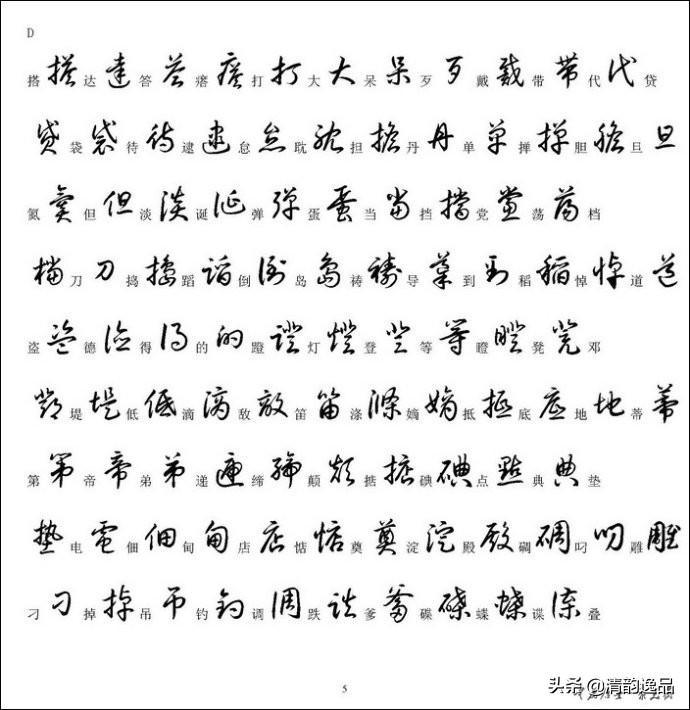 D
搭 搭 达 達 答 答 瘩 瘩 打 打 大 大 呆 呆 歹 歹 戴 戴 带 帶 代 代 贷
貸 袋 袋 待 待 逮 逮 怠 怠 耽 耽 担 擔 丹 丹 单 單 掸 撣 胆 膽 旦 旦
氮 但 但 淡 淡 诞 誕 弹 彈 蛋 蛋 当 當 挡 擋 党 黨 荡 蕩 档
檔 刀 刀 捣 搗 蹈 蹈 倒 倒 岛 島 祷 禱 导 導 到 到 稻 稻 悼 悼 道 道
盗 盜 德 德 得 得 的 的 蹬 蹬 灯 燈 登 登 等 等 瞪 瞪 凳 凳 邓
鄧 堤 堤 低 低 滴 滴 敌 敵 笛 笛 涤 滌 嫡 嫡 抵 抵 底 底 地 地 蒂 蒂
第 第 帝 帝 弟 弟 递 遞 缔 締 颠 顛 掂 掂 碘 碘 点 點 典 典 垫
墊 电 電 佃 佃 甸 甸 店 店 惦 惦 奠 奠 淀 淀 殿 殿 碉 碉 叼 叼 雕 雕
刁 刁 掉 掉 吊 吊 钓 釣 调 調 跌 跌 爹 爹 碟 碟 蝶 蝶 谍 諜 叠
5
头条 @清韵逸品